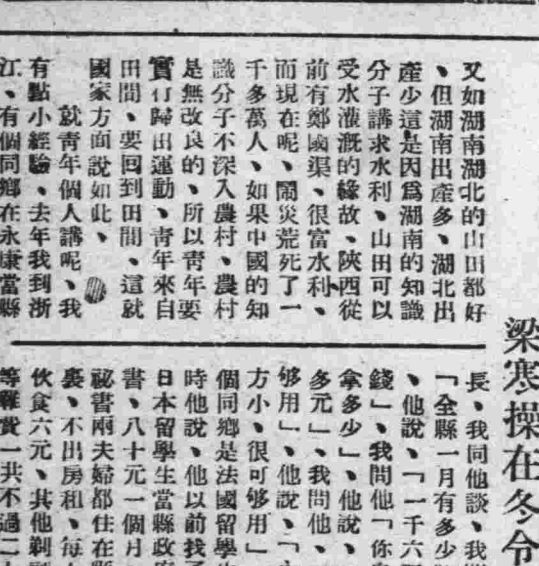 梁寒操在冬令
又如湖南湖北的山田都好
、但湖南出產多、湖北出
產少這是因爲湖南的知識
分子講求水利、山田可以
受水灌漑的緣故、陝西從
前有鄭國渠、很富水利、
而現在呢、鬧災荒死了一
千多萬人、如果中國的知
識分子不深入農村、農村
是無改良的、所以靑年要
實行歸田運動、靑年來自
田間、要回到田間、這就
國家方面說如此、
就靑年個人講呢、我
有點小經驗、去年我到浙
江、有個同鄉在永康當縣
長、我同他談、我
「全縣一月有多少
、他說、「一千六
錢」、我問他「你
拿多少」、他說、
多元」、我問他、
够用」、他說、「
方小、很可够用」
個同鄉是法國留學
時他說、他以前找
日本留學生當縣政
書、八十元一個月
祕書兩夫婦都住在
裏、不出房租、每
伙食六元、其他剃
等雜費一共不過二